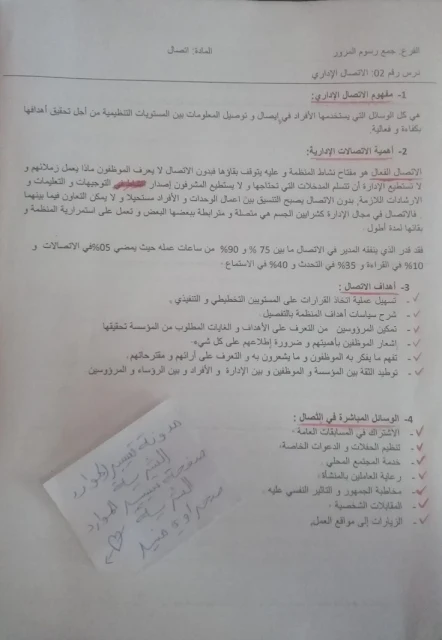 الفرع: جمع رسوم المرور
المادة: اتصال
درس رقم 02: الاتصال الإداري
1- مفهوم الاتصال الإداري:
هي كل الوسائل التي يستخدمها الأفراد في إيصال و توصيل المعلومات بين المستويات التنظيمية من أجل تحقيق أهدافها
بكفاءة و فعالية.
2- أهمية الاتصالات الإدارية:
الاتصال الفعال هو مفتاح نشاط المنظمة و عليه يتوقف بقاؤها فبدون الاتصال لا يعرف الموظفون ماذا يعمل زملائهم و
لا تستطيع الإدارة أن تتسلم المدخلات التي تحتاجها و لا يستطيع المشرفون إصدار التوجيهات و التعليمات و
الارشادات اللازمة. بدون الاتصال يصبح التنسيق بين اعمال الوحدات و الأفراد مستحيلا و لا يمكن التعاون فيما بينهما
فالاتصال في مجال الإدارة كشرايين الجسم هي متصلة و مترابطة ببعضها البعض و تعمل على استمرارية المنظمة و
بقائها لمدة أطول.
فقد قدر الذي ينفقه المدير في الاتصال ما بين 75 % و 90% من ساعات عمله حيث يمضي 05% في الاتصالات و
10% في القراءة و 35% في التحدث و 40% في الاستماع.
3- أهداف الاتصال:
- تسهيل عملية اتخاذ القرارات على المستويين التخطيطي و التنفيذي.
- شرح سياسات أهداف المنظمة بالتفصيل.
- تمكين المرؤوسين من التعرف على الأهداف و الغايات المطلوب من المؤسسة تحقيقها
- إشعار الموظفين بأهميتهم و ضرورة إطلاعهم على كل شيء.
- تفهم ما يفكر به الموظفون و ما يشعرون به و التعرف على أرائهم و مقترحاتهم.
- توطيد الثقة بين المؤسسة و الموظفين و بين الإدارة و الأفراد و بين الرؤساء و المرؤوسين.
4- الوسائل المباشرة في الثصال:
- الاشتراك في المسابقات العامة
- تنظيم الحفلات و الدعوات الخاصة
- خدمة المجتمع المحلي
- رعاية العاملين بالمنشأة
- مخاطبة الجمهور و التاثير النفسي عليه
- المقابلات الشخصية
- الزيارات إلى مواقع العمل
مدونة تسيير الموارد
البشرية
صفحة تسيير الموارد
البشرية